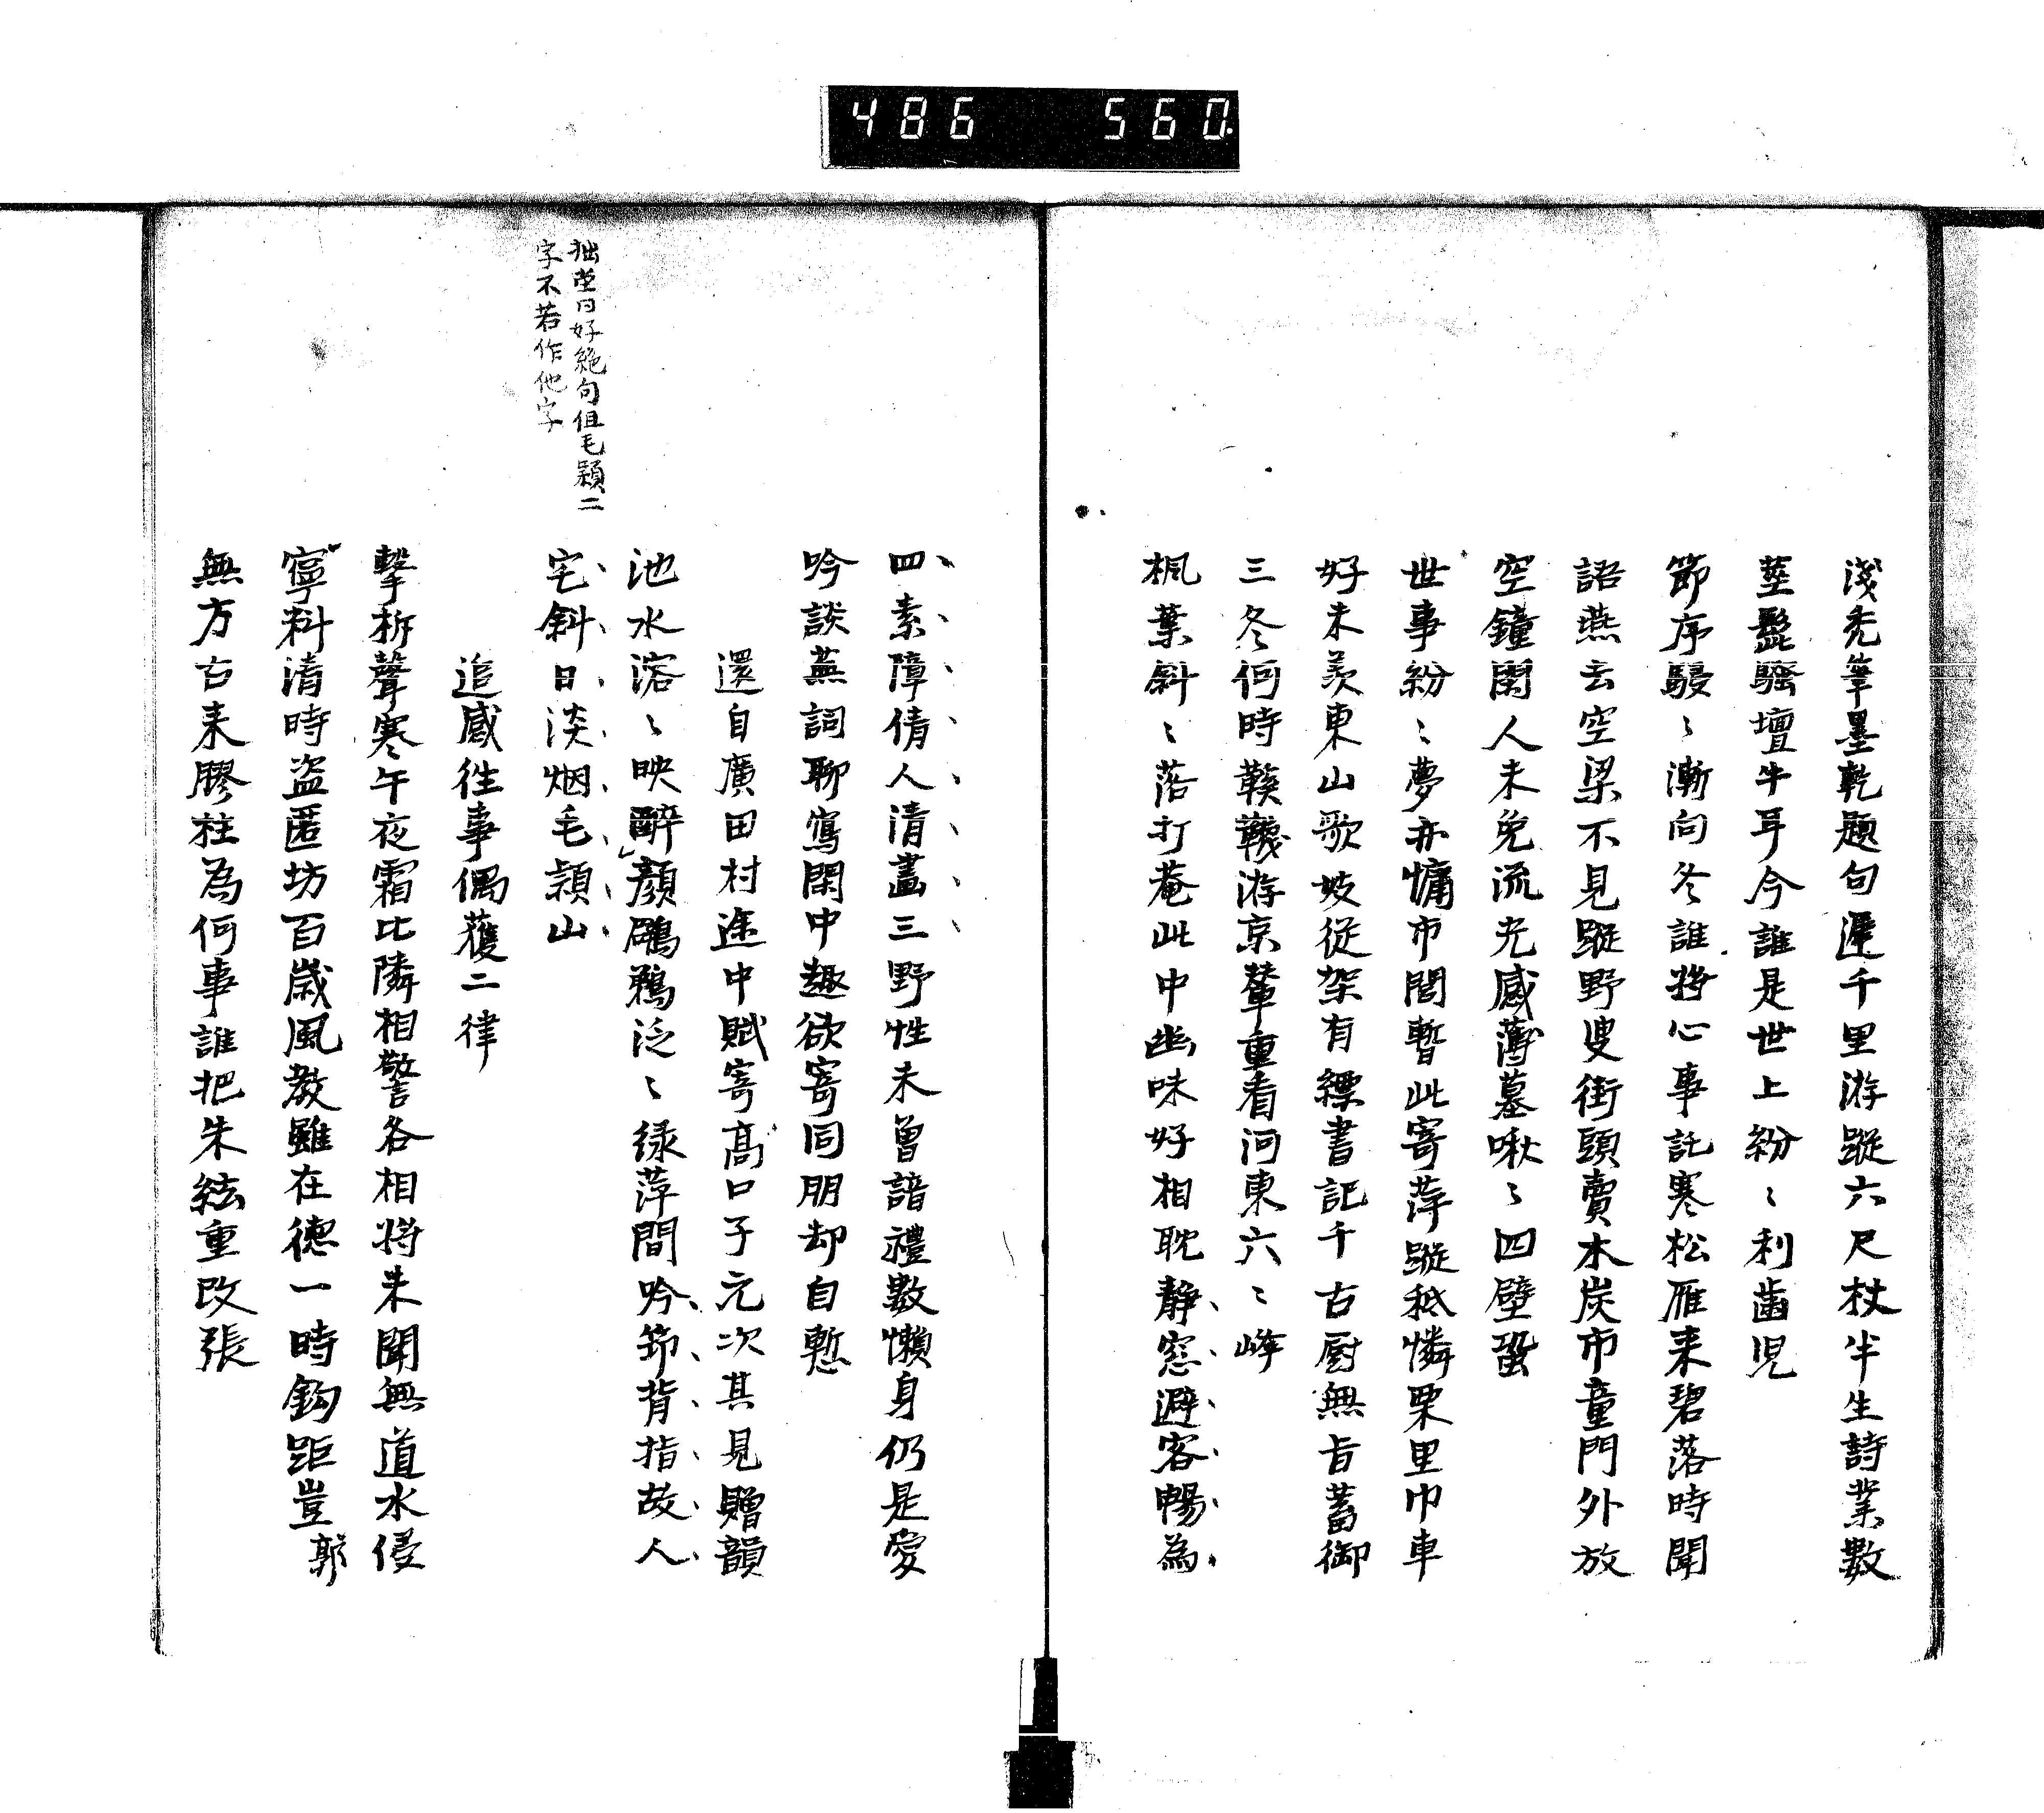 486 560
淺禿筆墨乾題句遲千里游蹤六尺杖半生詩業數
莖髭騷壇牛耳今誰是世上紛〻利齒児
節序駸〻漸向冬誰将心事託寒松雁来碧落時聞
語燕去空梁不見蹤野叟街頭賣木炭市童門外放
空鐘閑人未免流光感薄墓啾〻四壁蛩
世事紛〻夢亦慵市閭暫此寄萍蹤秪憐栗里巾車
好未羨東山歌妓従架有縹書記千古厨無旨蓄御
三冬何時鞵韈游京輦重看河東六〻峰
楓葉斜〻落打菴此中幽味好相耽静窓避客暢為
四素障倩人清畫三野性未曽諳禮數懶身仍是愛
吟談蕪詞聊寫閑中趣欲寄同朋却自慙
還自廣田村途中賦寄髙口子元次其見贈韻
池水溶〻映醉顔鸊鵜泛〻緑萍間吟節背指故人
宅斜日淡烟毛潁山
拙堂曰好絶句但毛頴二
字不若作他字
追感徃事偶獲二律
擊柝聲寒午夜霜比隣相警各相将朱聞無道水侵
寧料清時盗匿坊百歳風教雖在徳一時鈎距豈
郭
無方古来膠柱為何事誰把朱絃重改張